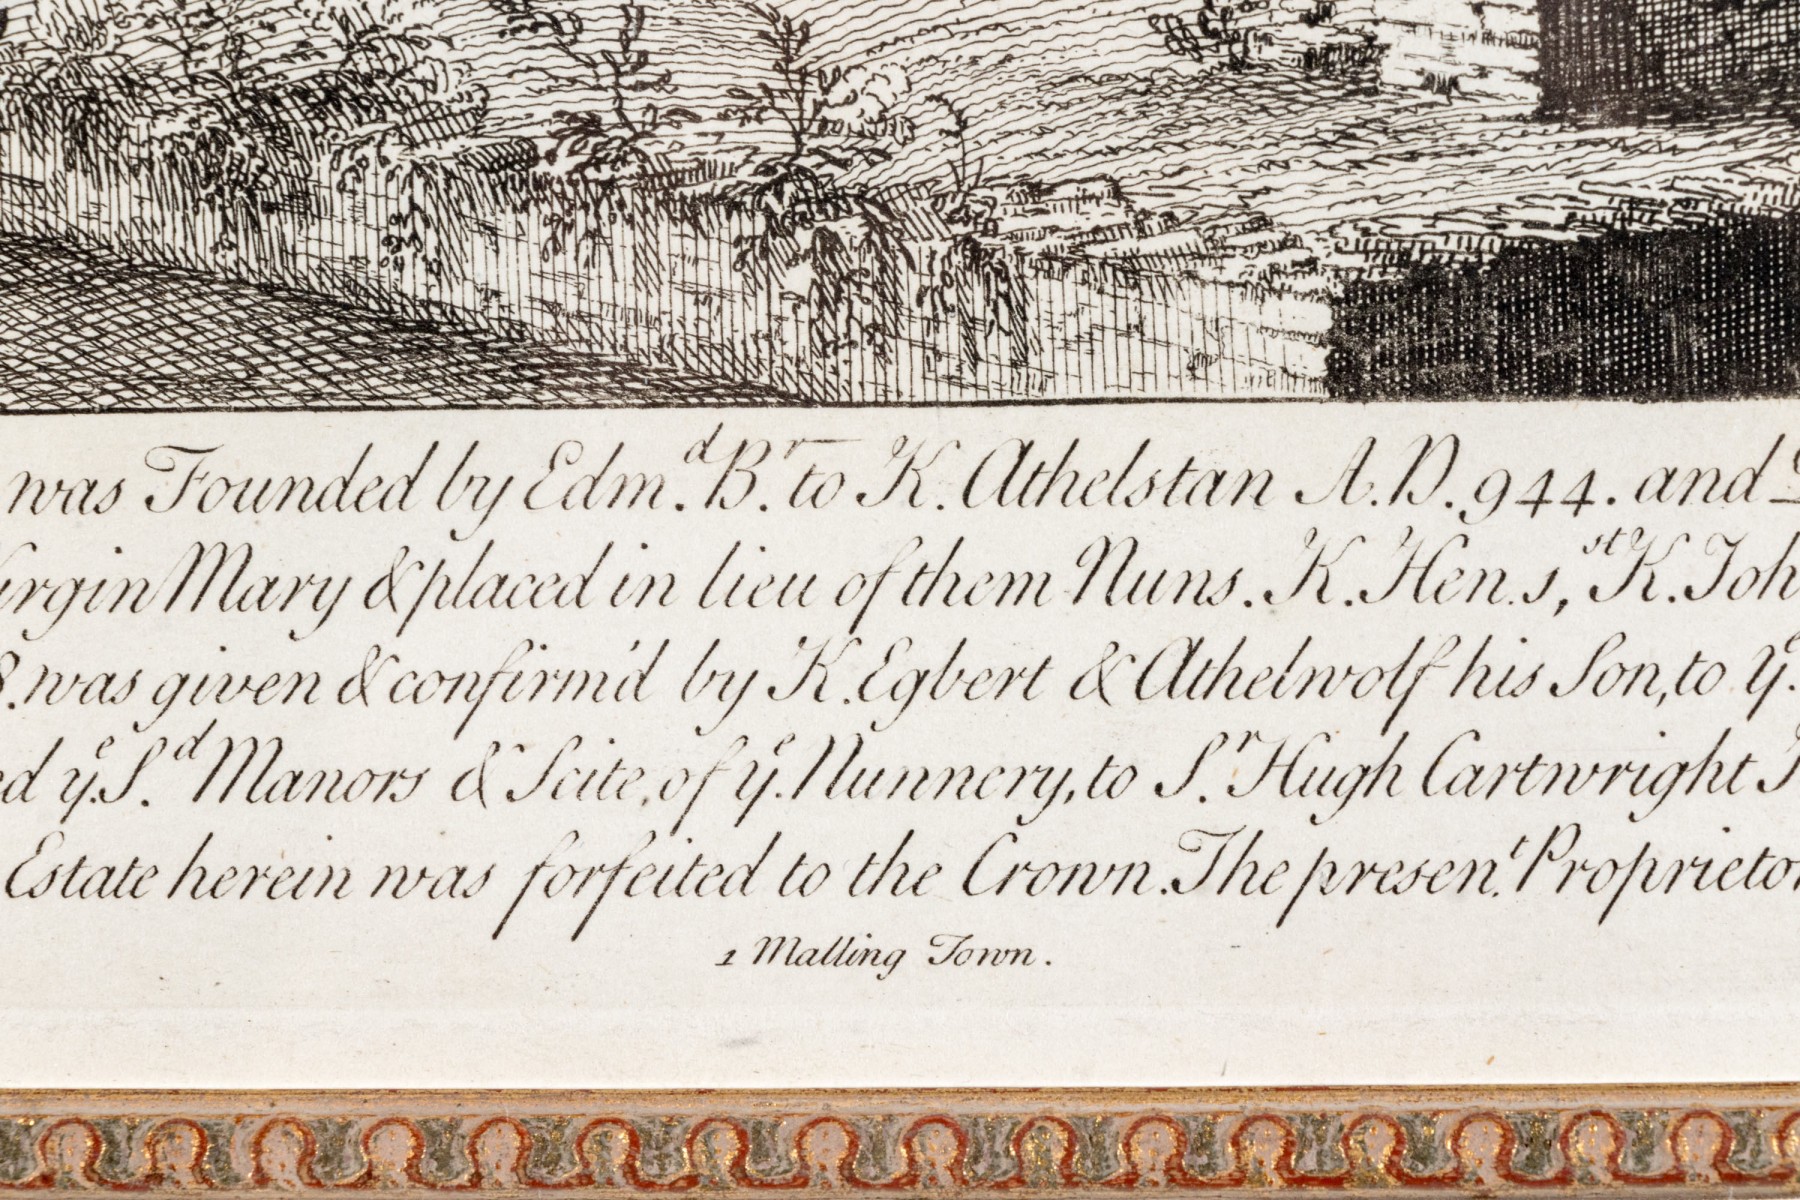 was Founded by Edm.d B.r to K. Athelstan A.D. 944. and
Virgin Mary & placed in lieu of them Nuns. K. Hen. 1,st K. Joh
8. was given & confirm'd by K. Egbert & Athelwolf his Son, to y.e
ed y.e S.d Manors & Scite, of y.e Nunnery, to S.r Hugh Cartwright
Estate herein was forfeited to the Crown. The presen.t Proprietor
1 Malling Town.